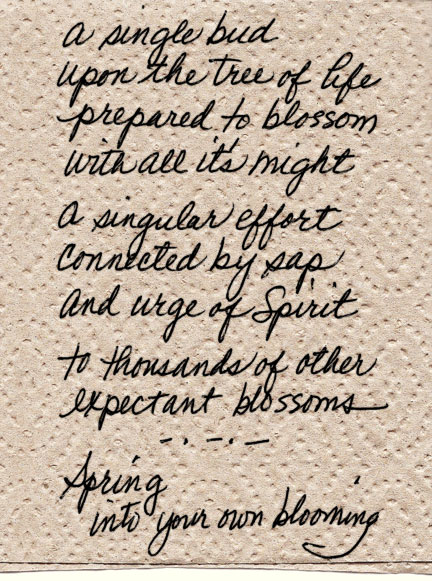 a single bud
upon the tree of life
prepared to blossom
with all it's might
a singular effort
connected by sap
and urge of Spirit
to thousands of other
expectant blossoms
-.-.-
Spring
into your own blooming